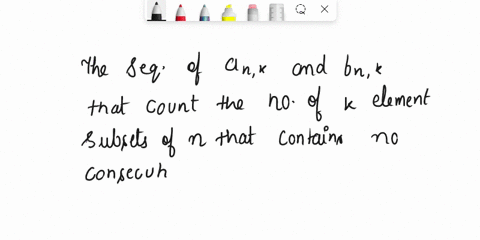 The Seq. of a n,k and b n,k
that count the no. of k element
Subsets of n that contains no
consecuh